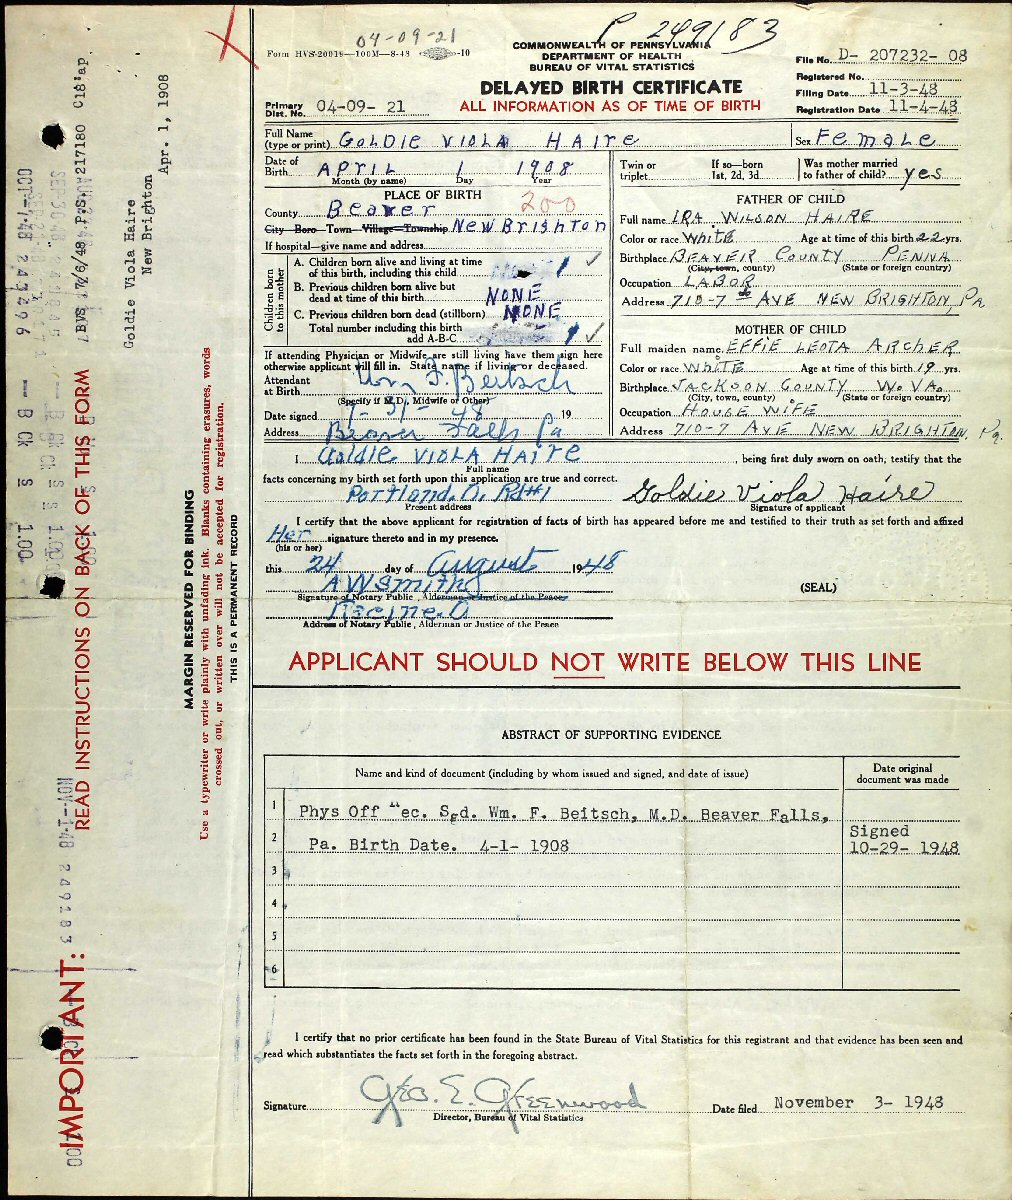 04-09-21
P 249183
Form HVS-20018—100M—8-48 -10
COMMONWEALTH OF PENNSYLVANIA
DEPARTMENT OF HEALTH
BUREAU OF VITAL STATISTICS
DELAYED BIRTH CERTIFICATE
ALL INFORMATION AS OF TIME OF BIRTH
File No. D- 207232- 08
Registered No.
Filing Date 11-3-48
Registration Date 11-4-48
Primary Dist. No. 04-09- 21
Full Name (type or print) GOLDIE VIOLA HAIRE Sex FEMALE
Date of Birth APRIL 1 1908
Month (by name) Day Year
Twin or triplet If so—born 1st, 2d, 3d Was mother married to father of child? yes
PLACE OF BIRTH
200
County Beaver
City Boro Town Village Township NEW BRIGHTON
If hospital—give name and address
Children born to this mother
A. Children born alive and living at time of this birth, including this child 1 ✓
B. Previous children born alive but dead at time of this birth NONE
C. Previous children born dead (stillborn) NONE
Total number including this birth add A-B-C 1 ✓
If attending Physician or Midwife are still living have them sign here
otherwise applicant will fill in. State name if living or deceased.
Attendant at Birth Wm F. Beitsch
(Specify if M.D., Midwife or Other)
Date signed 7-31-48 19
Address Beaver Falls Pa
FATHER OF CHILD
Full name IRA WILSON HAIRE
Color or race WHITE Age at time of this birth 22 yrs.
Birthplace BEAVER COUNTY PENNA
(City, town, county) (State or foreign country)
Occupation LABOR
Address 710-7 th AVE NEW BRIGHTON, Pa
MOTHER OF CHILD
Full maiden name EFFIE LEOTA ARCHER
Color or race WHITE Age at time of this birth 19 yrs.
Birthplace JACKSON COUNTY W. VA.
(City, town, county) (State or foreign country)
Occupation HOUSE WIFE
Address 710-7 AVE NEW BRIGHTON, Pa.
I Goldie VIOLA HAIRE, being first duly sworn on oath, testify that the
Full name
facts concerning my birth set forth upon this application are true and correct.
Portland, O. Rd#1 Goldie Viola Haire
Present address Signature of applicant
I certify that the above applicant for registration of facts of birth has appeared before me and testified to their truth as set forth and affixed
Her signature thereto and in my presence.
(his or her)
this 24 day of August 1948
A W Smith
Signature of Notary Public, Alderman, Justice of the Peace
(SEAL)
Racine, O
Address of Notary Public, Alderman or Justice of the Peace
APPLICANT SHOULD NOT WRITE BELOW THIS LINE
ABSTRACT OF SUPPORTING EVIDENCE
Name and kind of document (including by whom issued and signed, and date of issue) Date original document was made
1 Phys Off Rec. Sgd. Wm. F. Beitsch, M.D. Beaver Falls,
2 Pa. Birth Date. 4-1- 1908 Signed 10-29- 1948
3
4
5
6
I certify that no prior certificate has been found in the State Bureau of Vital Statistics for this registrant and that evidence has been seen and
read which substantiates the facts set forth in the foregoing abstract.
Signature Geo. E. Greenwood Date filed November 3- 1948
Director, Bureau of Vital Statistics
IMPORTANT: READ INSTRUCTIONS ON BACK OF THIS FORM
MARGIN RESERVED FOR BINDING
Use a typewriter or write plainly with unfading ink. Blanks containing erasures, words
crossed out, or written over will not be accepted for registration.
THIS IS A PERMANENT RECORD
Goldie Viola Haire
New Brighton
Apr. 1, 1908
BVS 7/6/48 P.S. 217180 C18'ap
OCT--7-48 243496 — B CK S 1.00
NOV--1-48 249183